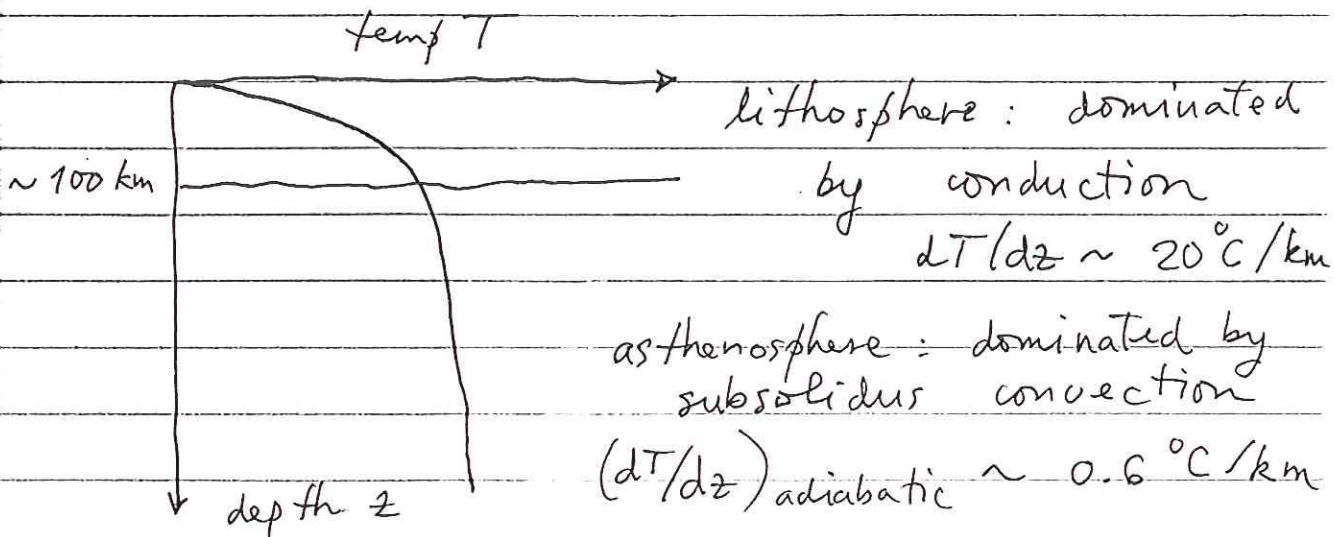 temp T
lithosphere : dominated
~ 100 km
by conduction
dT/dz ~ 20°C/km
asthenosphere : dominated by
subsolidus convection
(dT/dz)adiabatic ~ 0.6 °C/km
depth z